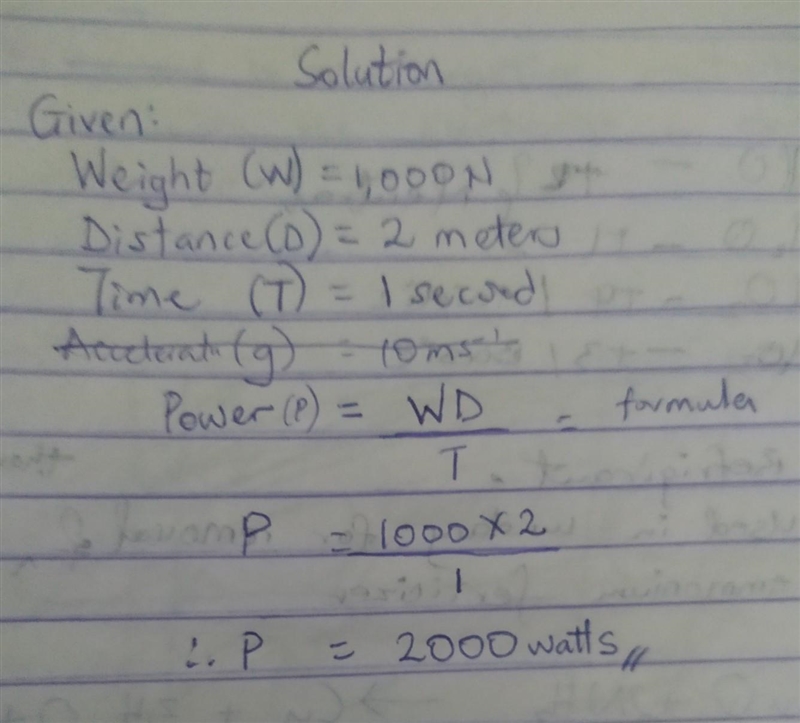 Solution
Given:
Weight (W) = 1,000N
Distance(D) = 2 meters
Time (T) = 1 second
(g) = 10ms⁻¹
Power(P) = WD = formula
T
P = 1000 × 2
1
∴ P = 2000 watts